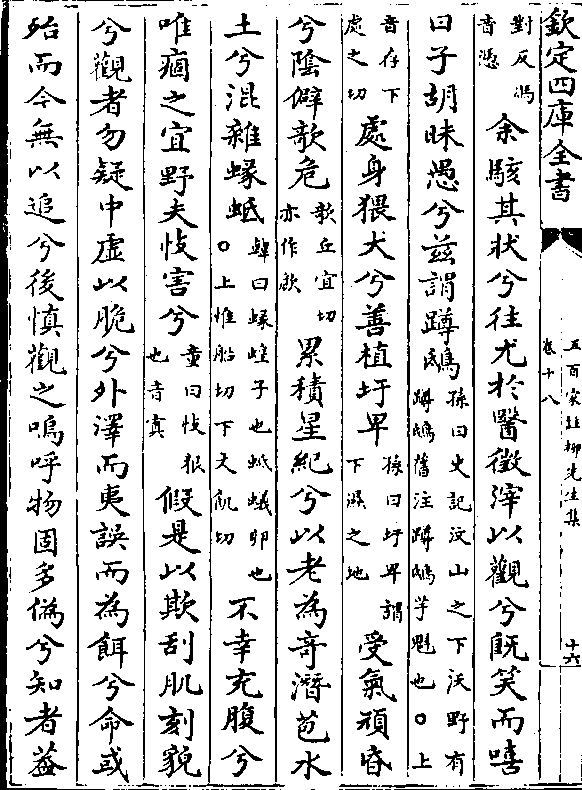 欽定四庫全書
五百家註柳先生集
卷十八
十六
對反馮音憑余駭其狀兮往尤於醫徵滓以觀兮既笑而嘻
曰子胡昧愚兮兹謂蹲鴟孫曰史記汶山之下沃野有蹲鴟舊注蹲鴟芋魁也○上
音存下處之切處身猥犬兮善植圩卑孫曰圩卑謂下濕之地受氣頑昏
兮陰僻欹危欹丘宜切亦作㰕累積星紀兮以老為奇潛苞水
土兮混雜蝝蚳韓曰蝝蝗子也蚳蟻卵也○上惟船切下丈飢切不幸充腹兮
唯痼之宜野夫忮害兮童曰忮狠也音寘假是以欺刮肌刻貌
兮觀者勿疑中虛以脆兮外澤而夷誤而為餌兮命或
殆而今無以追兮後慎觀之嗚呼物固多偽兮知者蓋